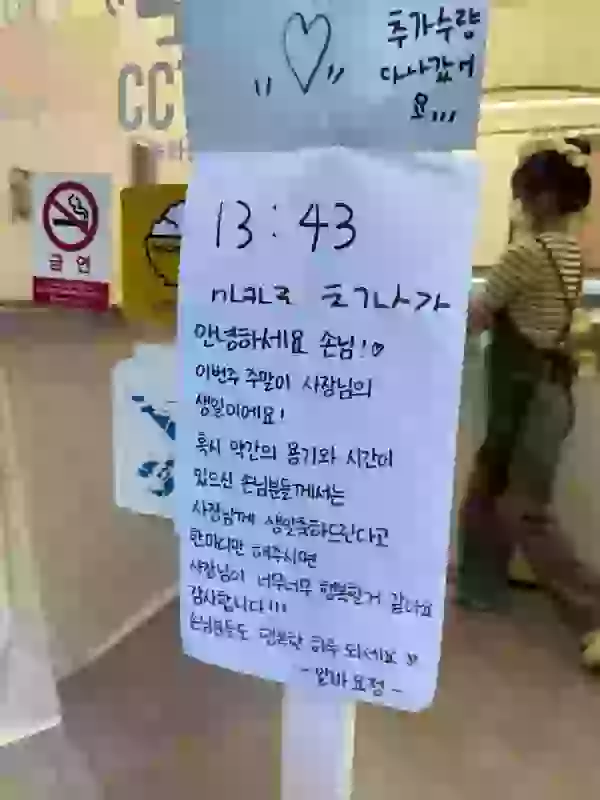 추가수량
다나갔어
요,,,
CC
금연
13:43
마카롱 초기나가
안녕하세요 손님!♡
이번주 주말이 사장님의
생일이에요!
혹시 약간의 용기와 시간이
있으신 손님분들께서는
사장님께 생일축하드린다고
한마디만 해주시면
사장님이 너무너무 행복할거 같아요
감사합니다!!!
손님분들도 행복한 하루 되세요
-알바요정-